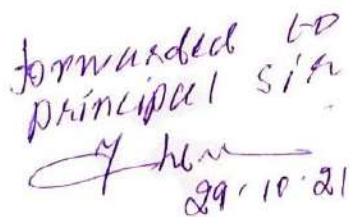 forwarded to
principal sir
29.10.21